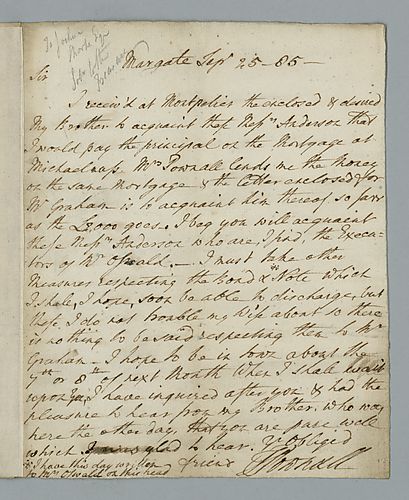 To Joshua
Sir
Margate Sepr 25 - 85 -
I receiv'd at Montpelier the enclosed & desired
My Brother to acquaint these Messrs Anderson that
I would pay the principal on the Mortgage at
Michaelmass. Mrs Pownall lends me the Money
on the same Mortgage & the letter enclosed for
Mr Graham is to acquaint him thereof so farr
as the goes. I beg you will acquaint
these Messrs Anderson who are, I find, the Execu-
tors of Mr Oswald. - I must take other
Measures respecting the Bond & Note which
I shall, I hope, soon be able to discharge, but
these I do not trouble my Wife about so there
is nothing to be said respecting them to Mr
Graham. I hope to be in town about the
7th or 8th of next Month when I shall wait
upon you, I have inquired after you & had the
pleasure to hear from my Brother, who was
here the other day, that you are pure well
which I was glad to hear. yr obliged
friend JPownall
I have this day written
to Mrs Oswald on this head